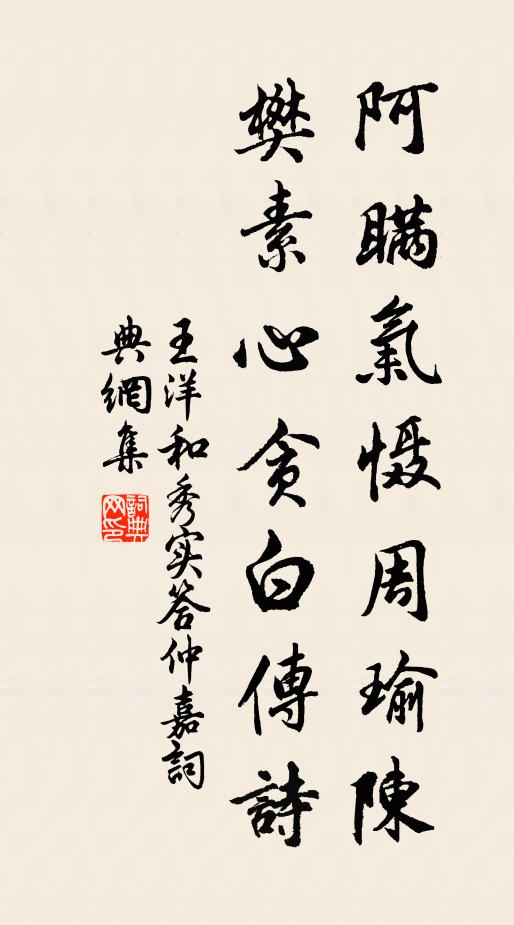 阿瞞氣慑周瑜陳
樊素心貪白傳詩
王洋和秀实答仲嘉詞
典網集
詞典网印